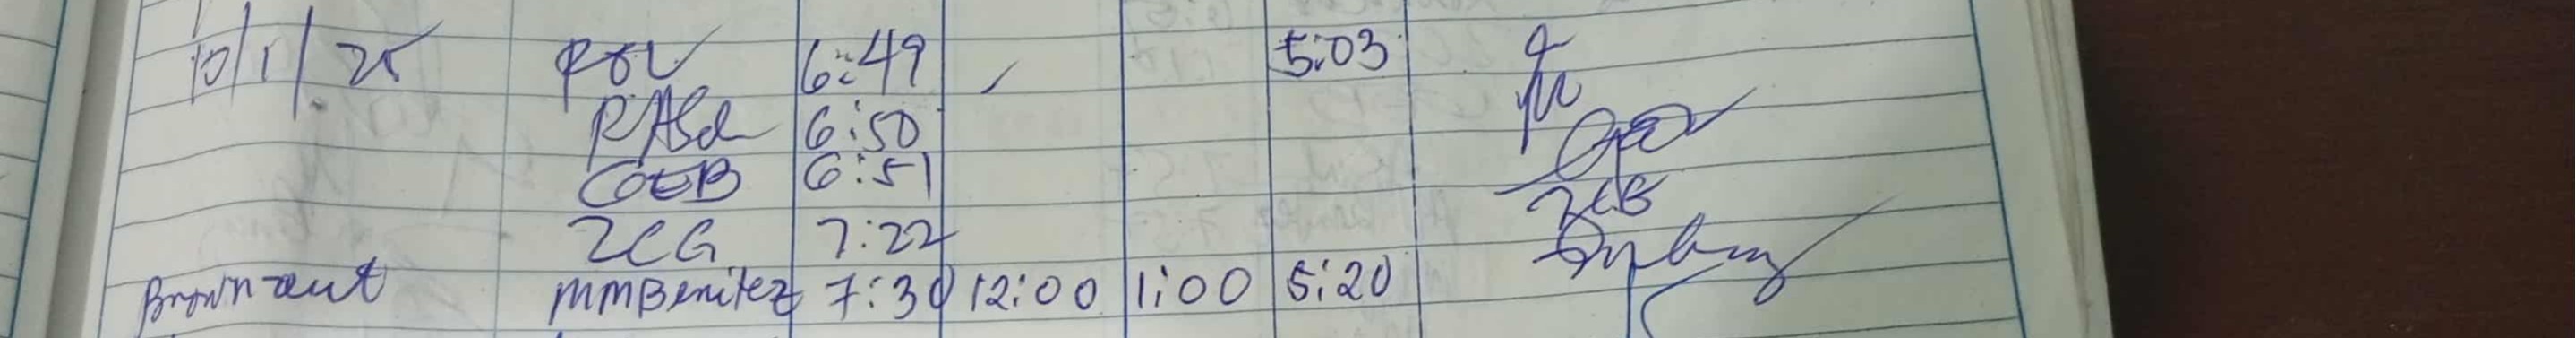 10/1/25 6:49 5:03
6:50
GEB 6:51
ZCG 7:22 ZCB
Brown-out MMBenitez 7:30 12:00 1:00 5:20